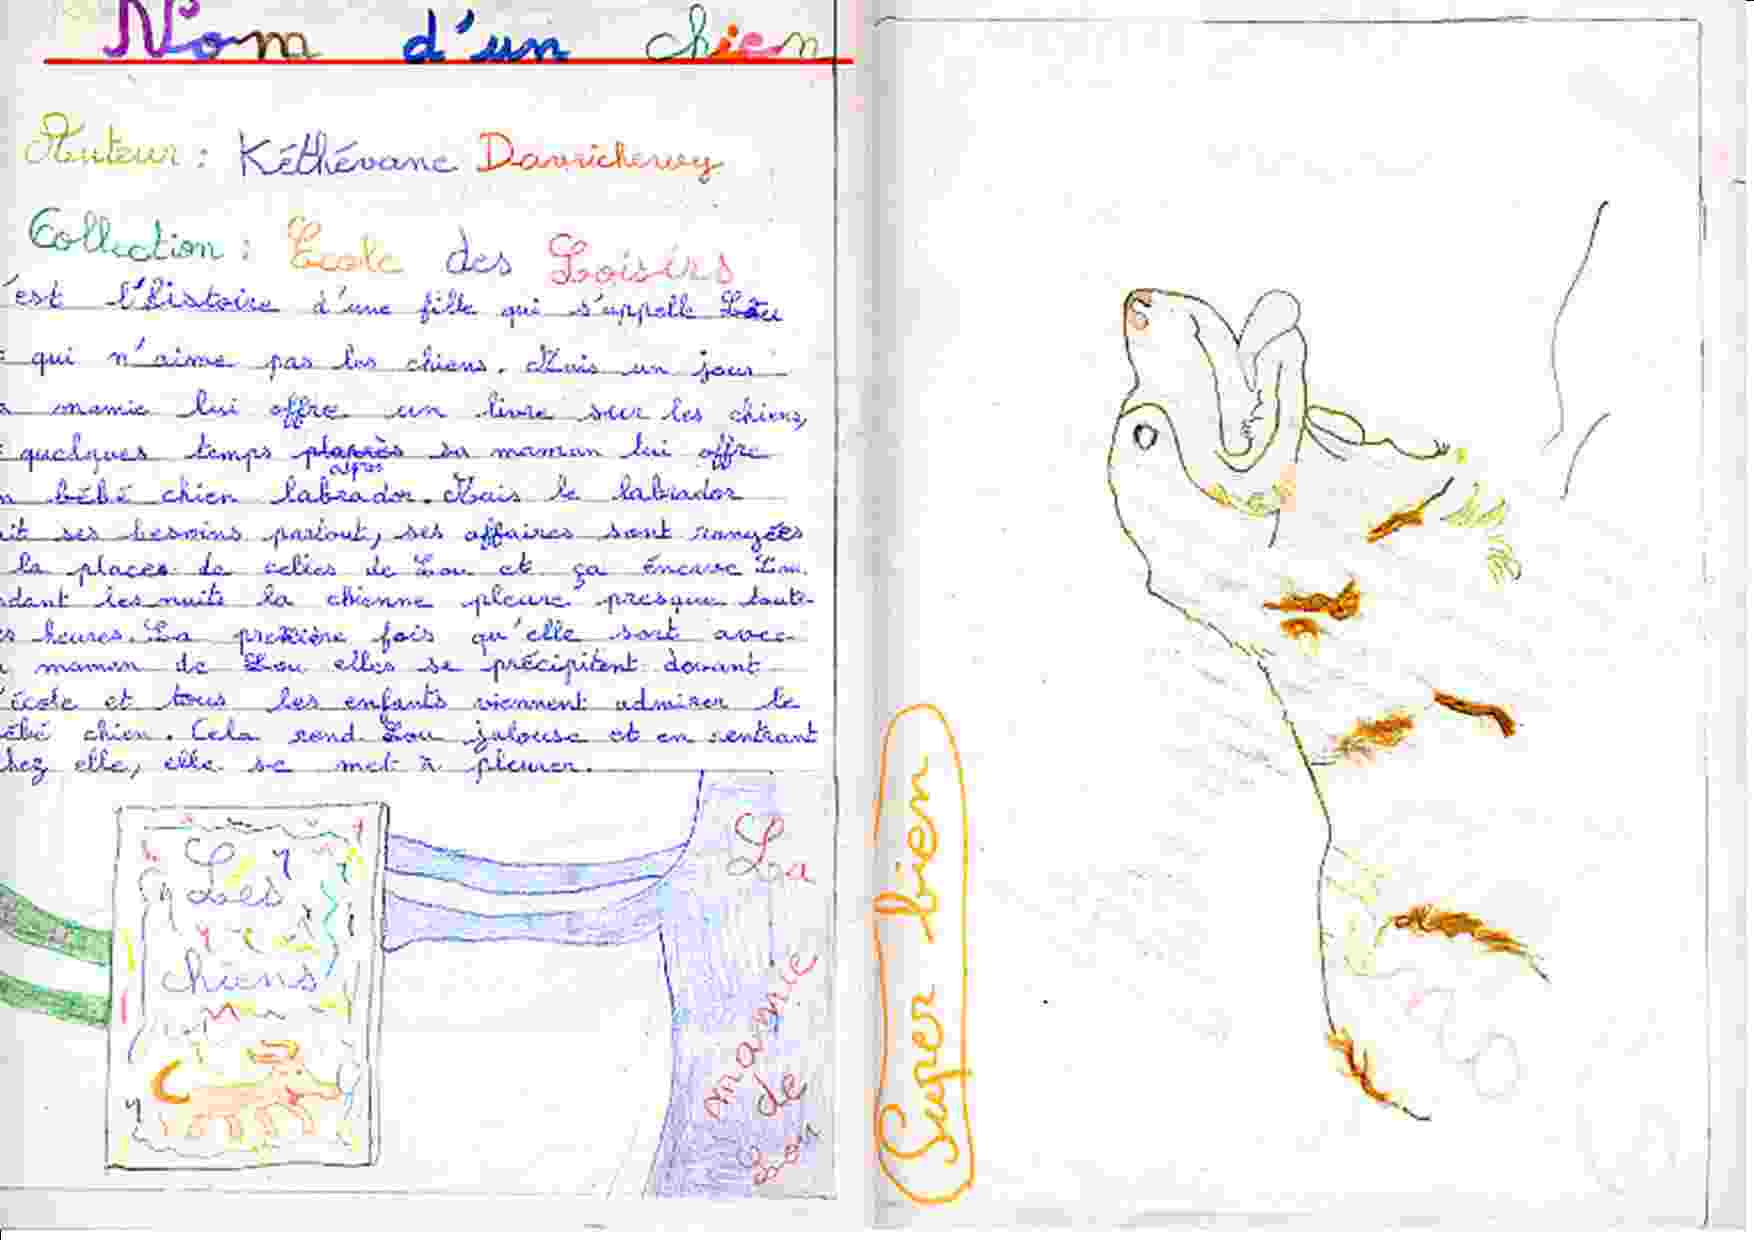 Nom d'un chien
Auteur : Kéthévane Davrichewy
Collection : Ecole des Loisirs
'est l'histoire d'une fille qui s'appelle Lou
qui n'aime pas les chiens. Mais un jour
a mamie lui offre un livre sur les chiens,
quelques temps après sa maman lui offre
n bébé chien labrador. Mais le labrador
ait ses besoins partout, ses affaires sont rangées
la places de celles de Lou et ça énerve Lou.
ndant les nuits la chienne pleure presque toute
es heures. La première fois qu'elle sort avec
a maman de Lou elles se précipitent devant
'école et tous les enfants viennent admirer le
ébé chien. Cela rend Lou jalouse et en rentrant
chez elle, elle se met à pleurer.
Les
chiens
La
mamie
de
Lou
Super bien